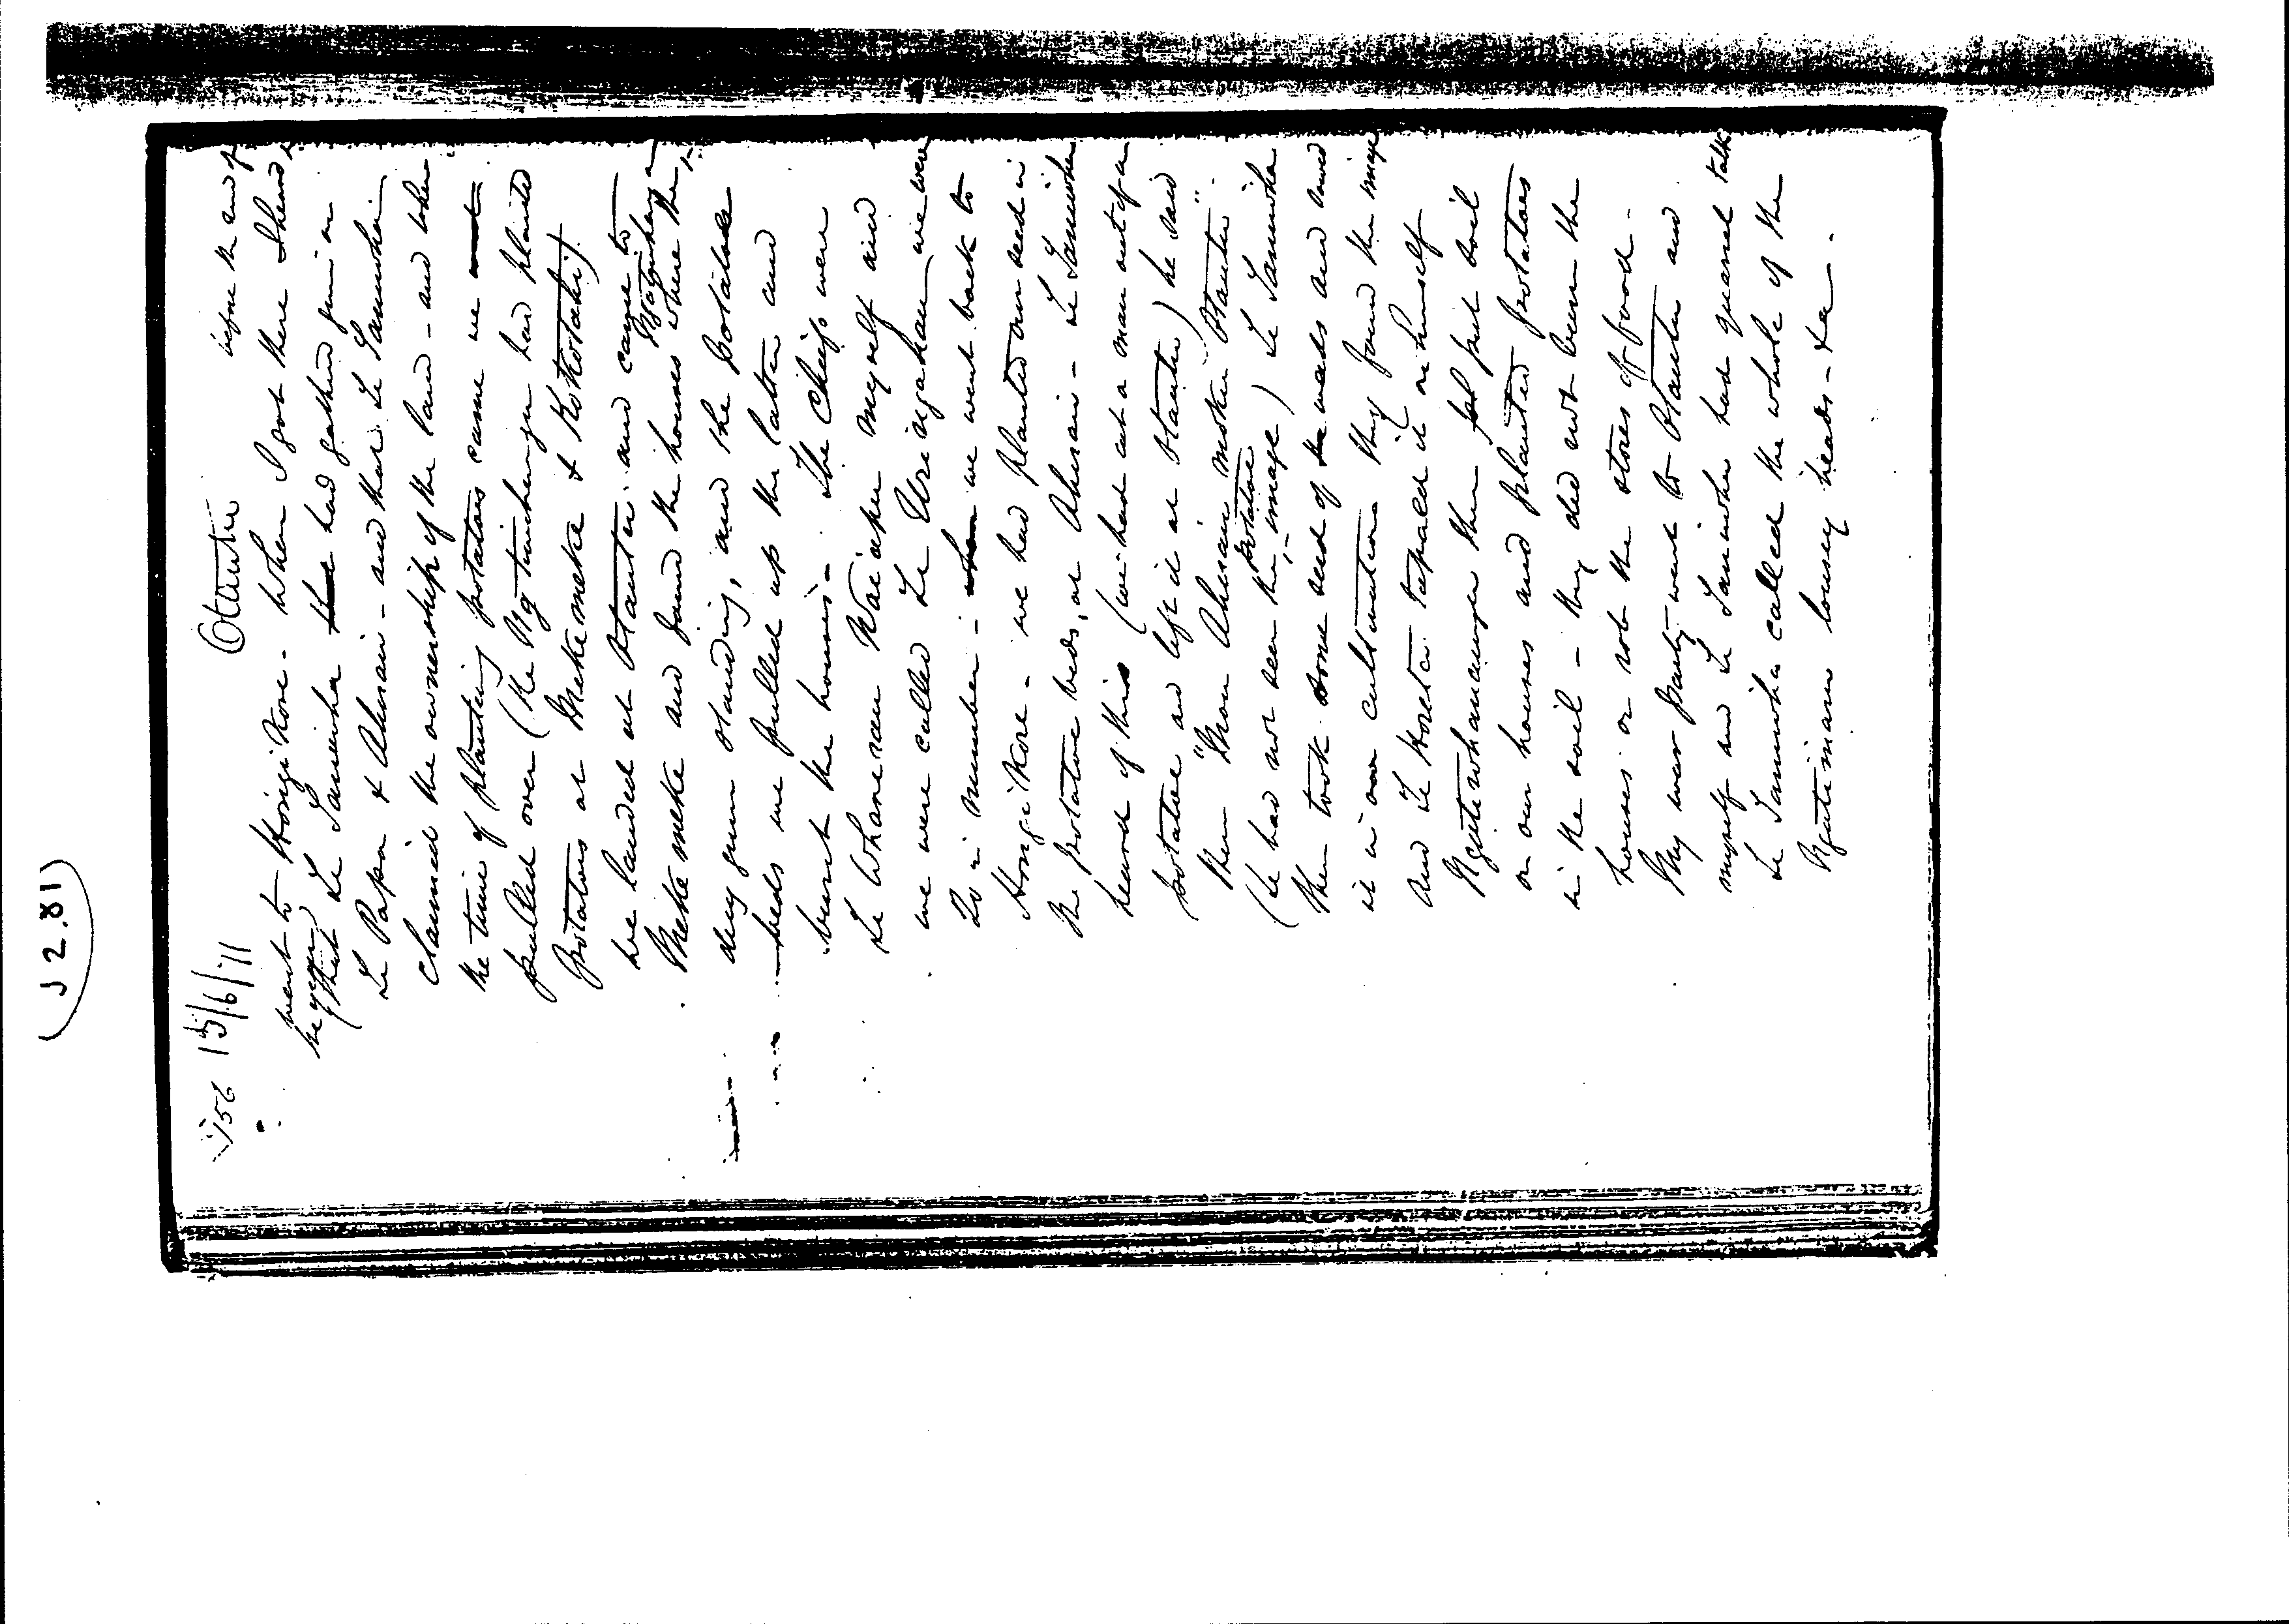 (J 2.81)
156 15/6/71 Otautu before the end of
went to Hongi Kore - When I got there I heard
the year
that Te Taniwha had gathered gum on
Te Papa & Ahurai - and that Te Taniwha
claimed the ownership of the land - and when
the time of planting potatoes came we went
pulled over (the Ng had planted
potatoes at Mekemeke & Kohotahi)
we landed at Otautu and came to
Mekemeke and found the houses where the
dug gum standing, and the potatoe
beds we pulled up the latter and
burnt the houses - The chiefs were
Te Whanerau myself and
we were called Te we were
20 in number - when we went back to
Hongi Kore - we had planted our seed in
the potatoe beds, at Ahurai - Te Taniwha
heard of this (we had cut a man out of a
potatoe and left it at Otautu) he said
then "Thou Ahurai mother Otautu".
(he had not seen the potatoe image) Te Taniwha
then took some seed of weeds and
it in our cultivation they found the image
and Te Horeta it on himself
Ngatiwhanaunga then put soil
on our houses and planted potatoes
in the soil - they did not burn the
houses or rob the stores of food -
My war party went to Otautu and
myself and Te Taniwha had quarrel talk
Te Taniwha called the whole of the
Ngatimaru lousey heads - &a -